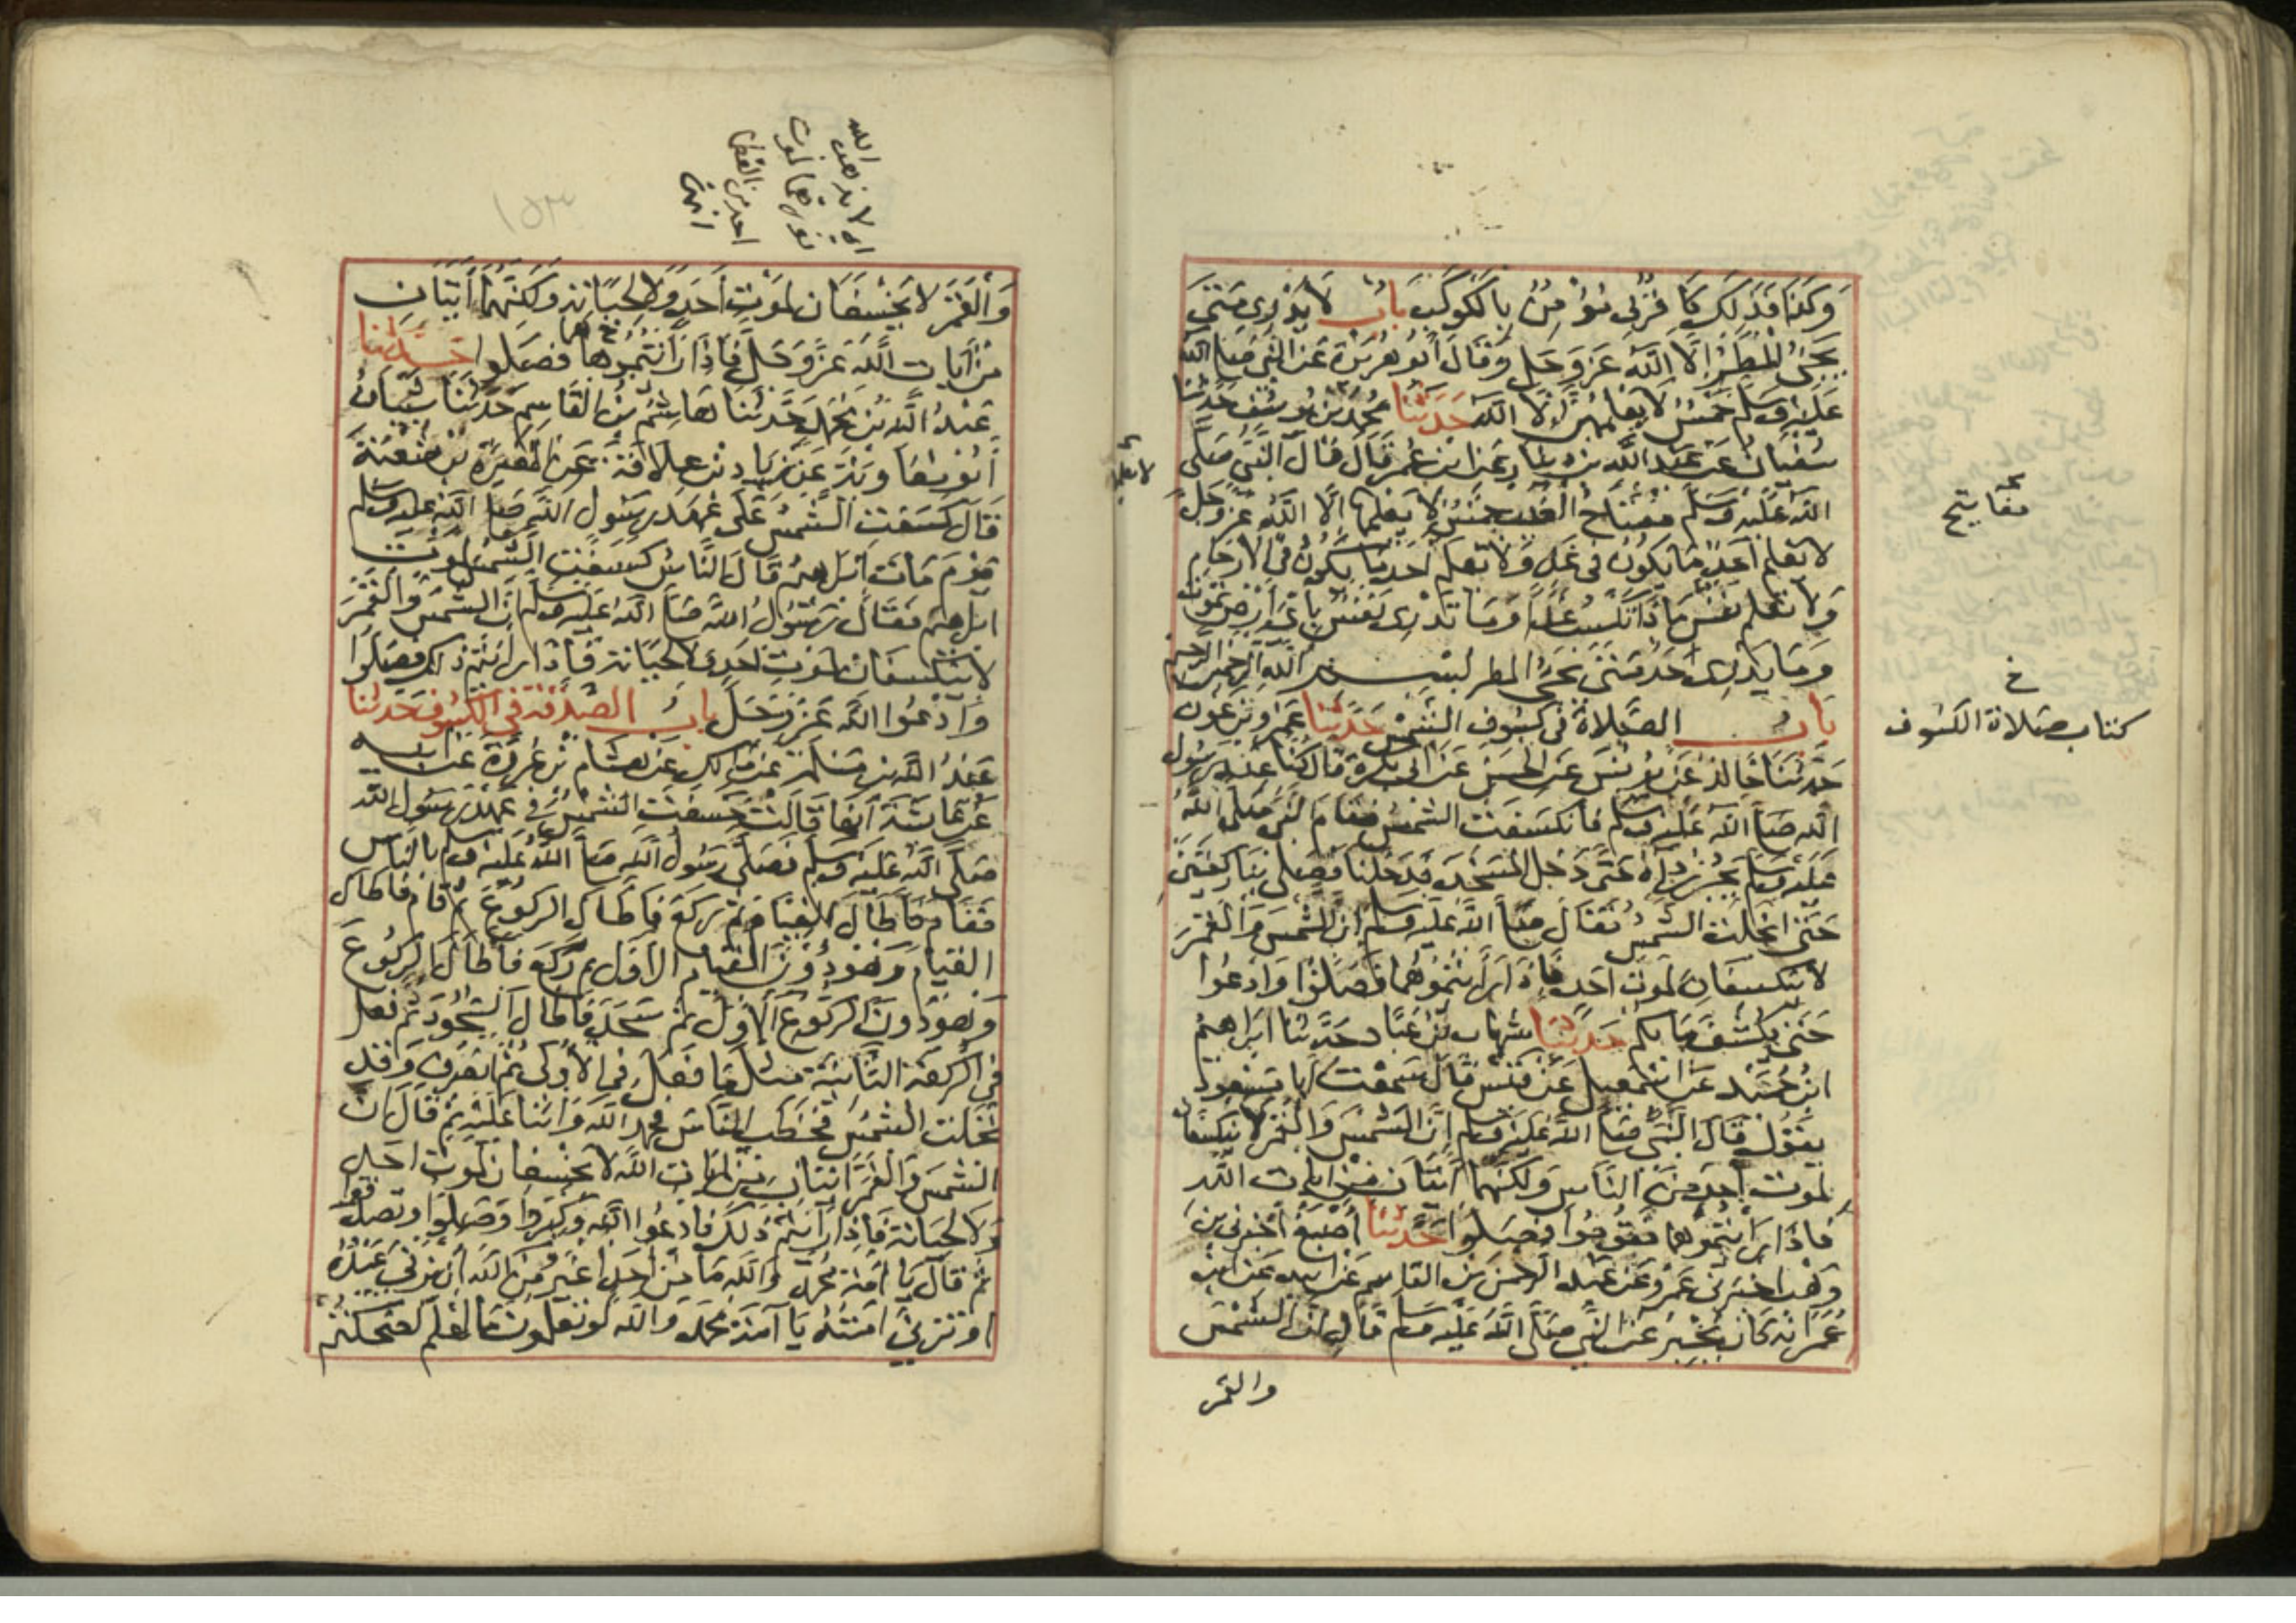 وكذا فذلك كافر بي مؤمن بالكوكب باب لا يدري متى
يجئ المطر إلا الله عز وجل وقال أبو هريرة عن النبي صلى الله
عليه وسلم خمس لا يعلمهن إلا الله حدثنا محمد بن يوسف حدثنا
سفيان عن عبد الله بن دينار عن ابن عمر قال قال النبي صلى
الله عليه وسلم مفتاح الغيب خمس لا يعلمها إلا الله عز وجل
لا يعلم أحد ما يكون في غد ولا يعلم أحد ما يكون في الارحام
ولا تعلم نفس ماذا تكسب غدا وما تدري نفس باي أرض تموت
وما يدري أحد متى يجئ المطر بسم الله الرحمن الرحيم
باب الصلاة في كسوف الشمس حدثنا عمرو بن عون
حدثنا خالد عن يونس عن الحسن عن ابي بكرة قال كنا عند رسول
الله صلى الله عليه وسلم فانكسفت الشمس فقام النبي صلى الله
عليه وسلم يجر رداءه حتى دخل المسجد فدخلنا فصلى بنا ركعتين
حتى انجلت الشمس فقال صلى الله عليه وسلم ان الشمس والقمر
لا ينكسفان لموت احد فاذا رأيتموهما فصلوا وادعوا
حتى يكشف ما بكم حدثنا شهاب بن عباد حدثنا ابراهيم
ابن حميد عن اسمعيل عن قيس قال سمعت ابا مسعود
يقول قال النبي صلى الله عليه وسلم إن الشمس والقمر لا ينكسفان
لموت أحد من الناس ولكنهما آيتان من ايات الله
فاذا رأيتموهما فقوموا فصلوا حدثنا أصبغ أخبرني بن
وهب اخبرني عمرو عن عبد الرحمن بن القاسم عن ابيه عن ابن
عمر انه كان يخبر عن النبي صلى الله عليه وسلم قال إن الشمس
والقمر
مفاتيح
خ
كتاب صلاة الكسوف
لا يعلمها
والقمر لا يخسفان لموت أحد ولا لحياته ولكنهما آيتان
من آيات الله عز وجل فاذا رأيتموها فصلوا حدثنا
عبد الله بن محمد حدثنا هاشم بن القاسم حدثنا شيبان
أبو معاوية عن زياد بن علاقة عن المغيرة بن شعبة
قال كسفت الشمس على عهد رسول الله صلى الله عليه وسلم
يوم مات ابراهيم فقال الناس كسفت الشمس لموت
ابراهيم فقال رسول الله صلى الله عليه وسلم إن الشمس والقمر
لا ينكسفان لموت احد ولا لحياته فاذا رأيتم ذلك فصلوا
وادعوا الله عز وجل باب الصدقة في الكسوف حدثنا
عبد الله بن مسلمة عن مالك عن هشام بن عروة عن ابيه
عن عائشة أنها قالت خسفت الشمس في عهد رسول الله
صلى الله عليه وسلم فصلى رسول الله صلى الله عليه وسلم بالناس
فقام فأطال القيام ثم ركع فأطال الركوع ثم قام فاطال
القيام وهو دون القيام الأول ثم ركع فأطال الركوع
وهو دون الركوع الأول ثم سجد فأطال السجود ثم فعل
في الركعة الثانية مثل ما فعل في الأولى ثم انصرف وقد
تجلت الشمس فخطب الناس فحمد الله وأثنا عليه ثم قال ان
الشمس والقمر آيتان من ايات الله لا يخسفان لموت احد
ولا لحياته فاذا رأيتم ذلك فادعوا الله وكبروا وصلوا وتصدقوا
ثم قال يا أمة محمد والله ما من أحد أغير من الله أن يزني عبده
او تزني امته يا أمة محمد والله لو تعلمون ما أعلم لضحكتم